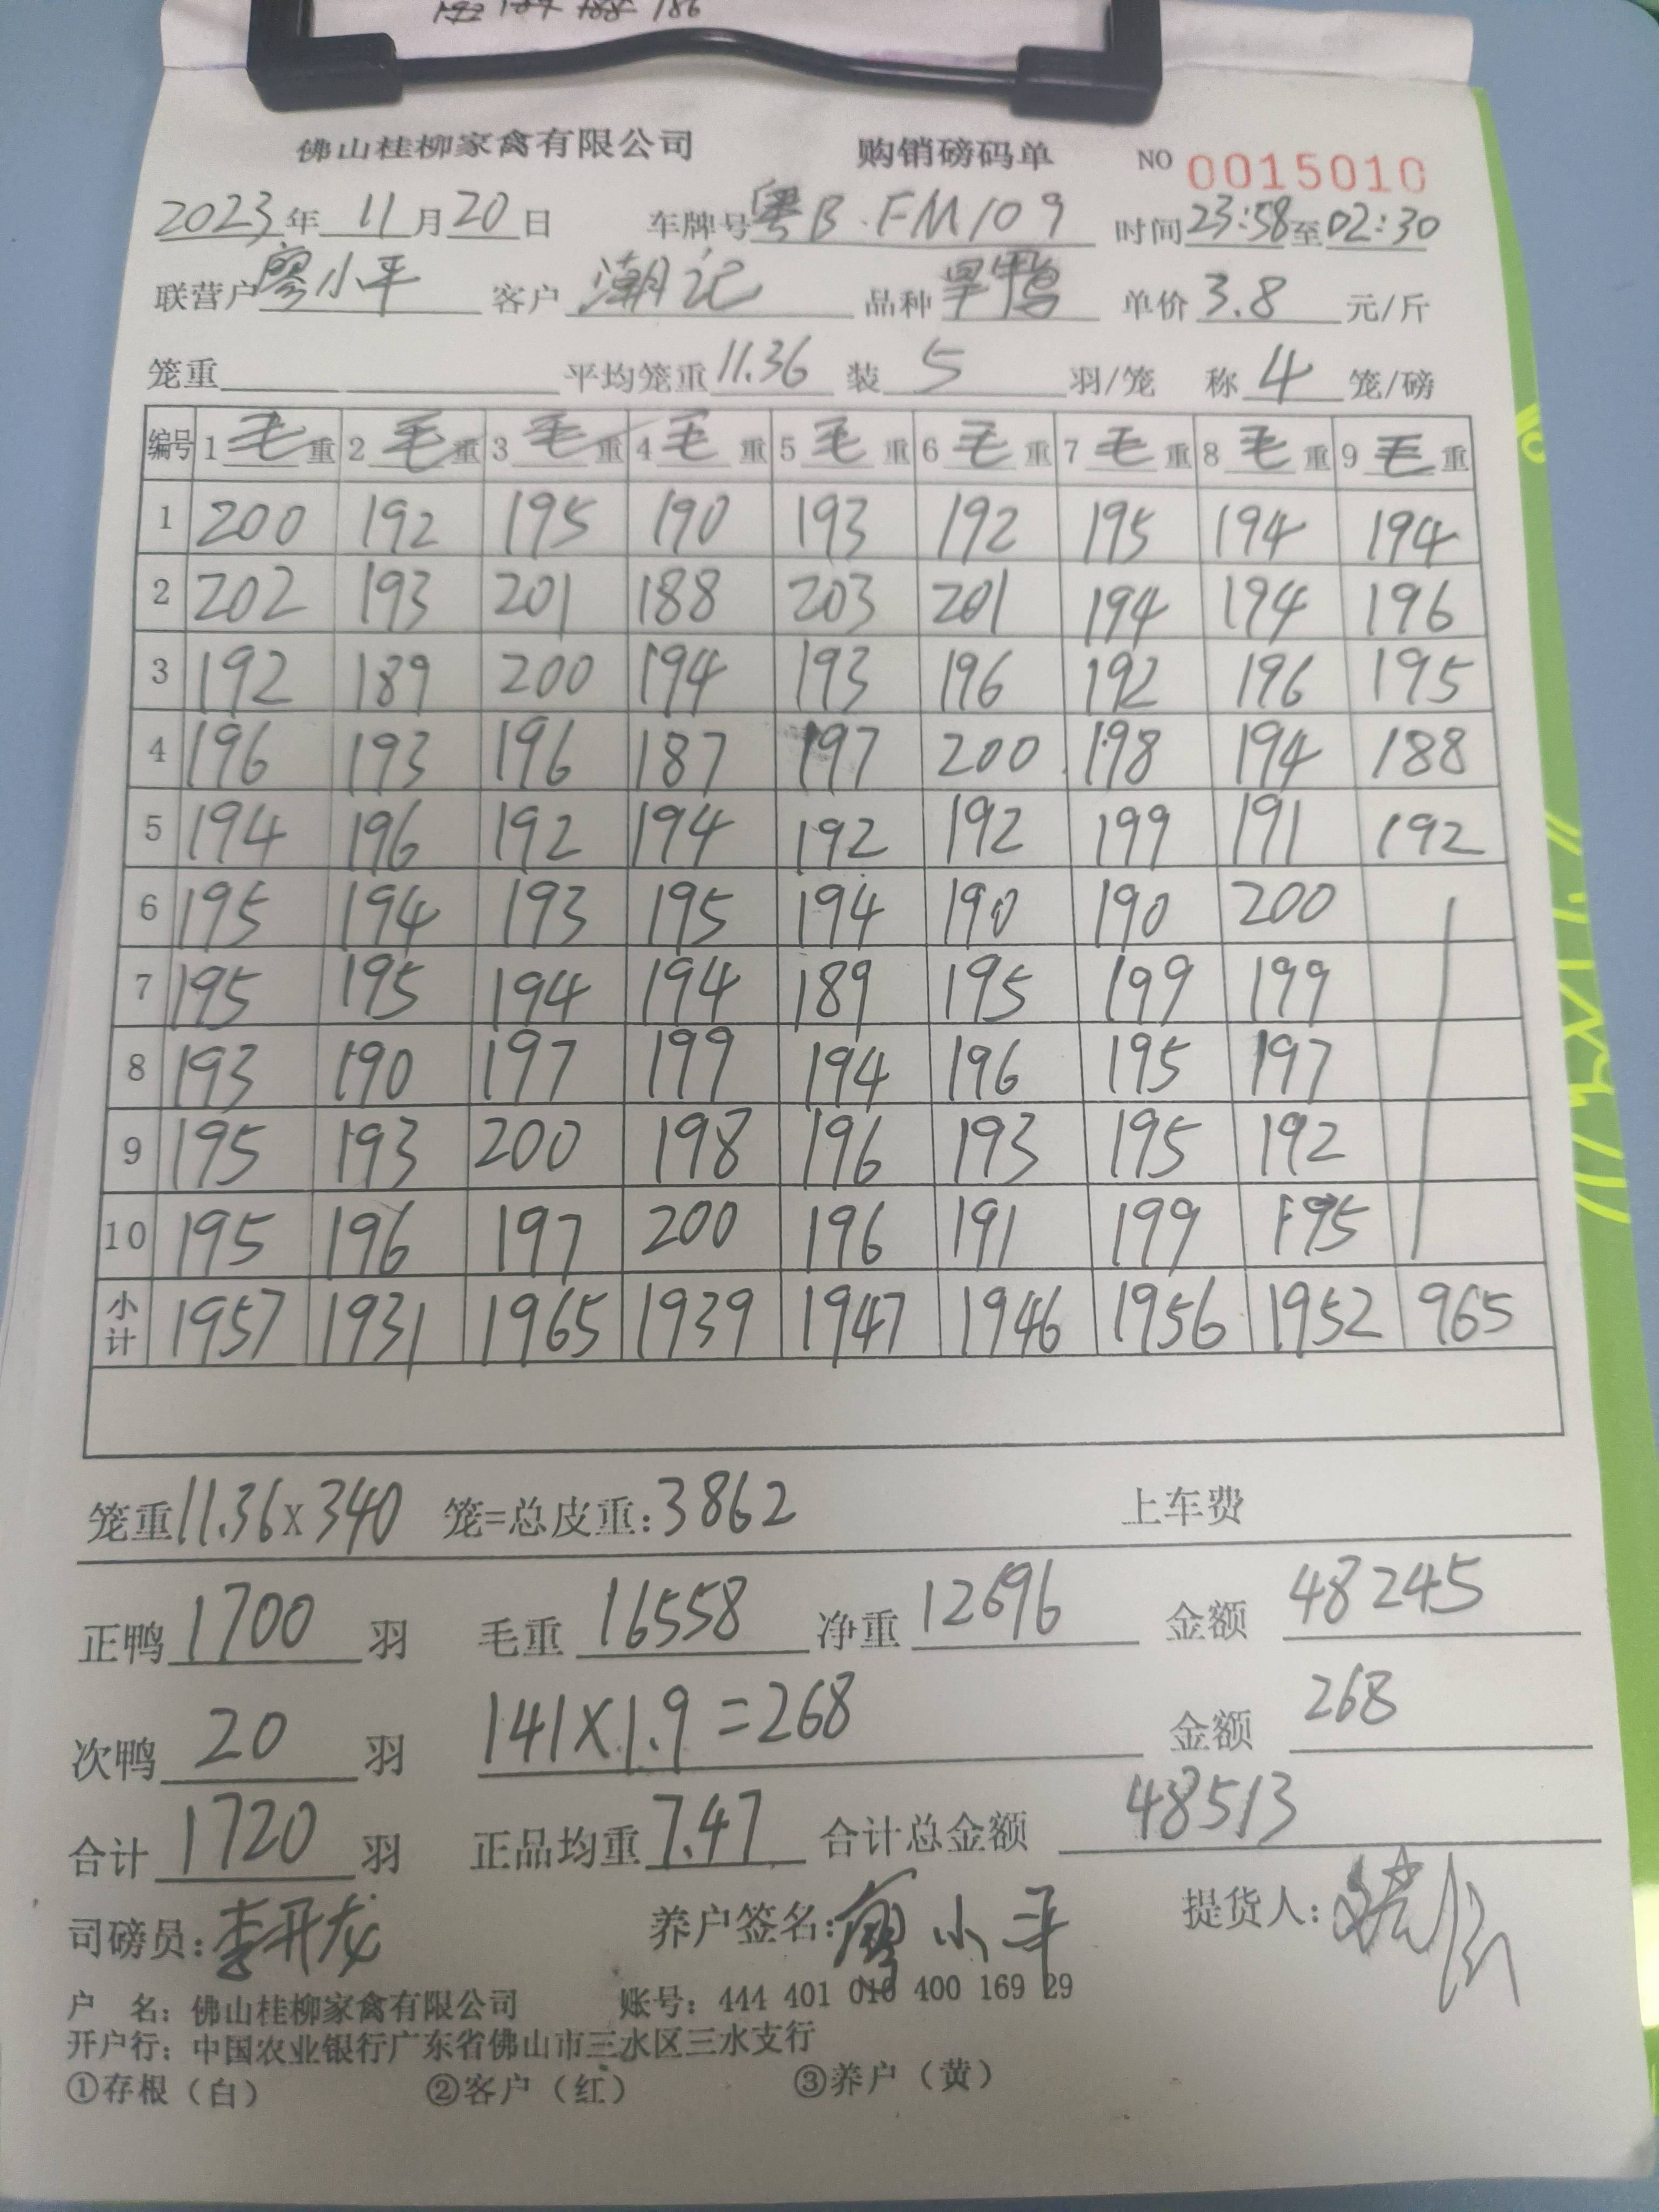 186
佛山桂柳家禽有限公司 购销磅码单 NO 0015010
2023年 11月20日 车牌号粤B·FM109 时间23:58至02:30
联营户廖小平 客户 潮记 品种 旱鸭 单价 3.8 元/斤
笼重 平均笼重 11.36 装 5 羽/笼 称 4 笼/磅
编号 1 毛重 2 毛重 3 毛重 4 毛重 5 毛重 6 毛重 7 毛重 8 毛重 9 毛重
1 200 192 195 190 193 192 195 194 194
2 202 193 201 188 203 201 194 194 196
3 192 189 200 194 193 196 192 196 195
4 196 193 196 187 197 200 198 194 188
5 194 196 192 194 192 192 199 191 192
6 195 194 193 195 194 190 190 200
7 195 195 194 194 189 195 199 199
8 193 190 197 199 194 196 195 197
9 195 193 200 198 196 193 195 192
10 195 196 197 200 196 191 199 195
小计 1957 1931 1965 1939 1947 1946 1956 1952 965
笼重11.36×340 笼=总皮重:3862 上车费
正鸭 1700 羽 毛重 16558 净重 12696 金额 48245
次鸭 20 羽 141×1.9=268 金额 268
合计 1720 羽 正品均重 7.47 合计总金额 48513
司磅员:李开龙 养户签名:廖小平 提货人:
户 名：佛山桂柳家禽有限公司 账号：444 401 010 400 169 29
开户行：中国农业银行广东省佛山市三水区三水支行
①存根（白） ②客户（红） ③养户（黄）